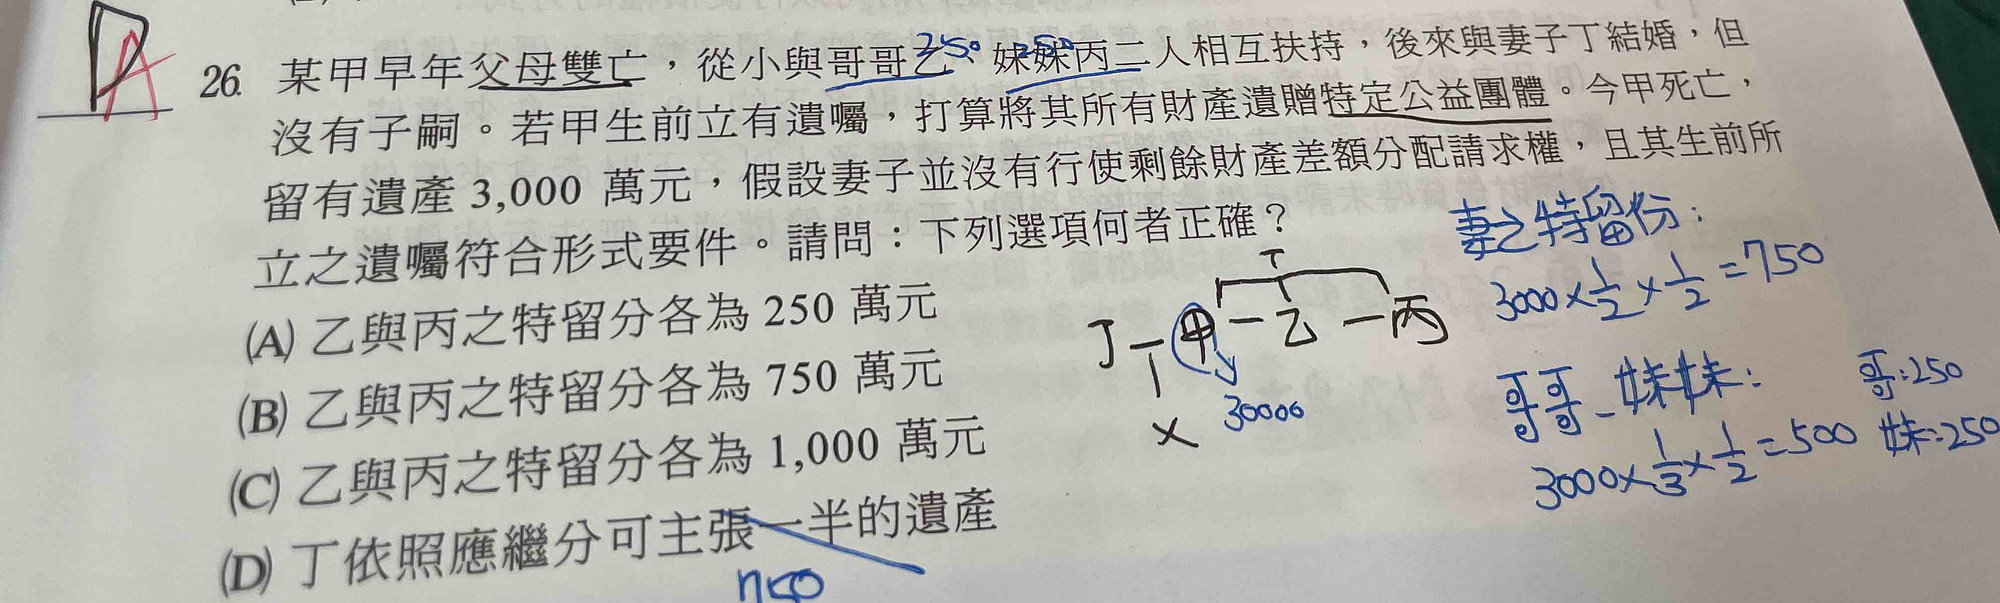 26. 某甲早年父母雙亡，從小與哥哥乙、妹妹丙二人相互扶持，後來與妻子丁結婚，但
250
250
沒有子嗣。若甲生前立有遺囑，打算將其所有財產遺贈特定公益團體。今甲死亡，
留有遺產 3,000 萬元，假設妻子並沒有行使剩餘財產差額分配請求權，且其生前所
立之遺囑符合形式要件。請問：下列選項何者正確？
(A) 乙與丙之特留分各為 250 萬元
(B) 乙與丙之特留分各為 750 萬元
(C) 乙與丙之特留分各為 1,000 萬元
(D) 丁依照應繼分可主張一半的遺產
750
D
A
丁－甲－乙－丙
30000
妻之特留份：
3000×1/2×1/2=750
哥哥、妹妹：
3000×1/3×1/2=500
哥:250
妹:250